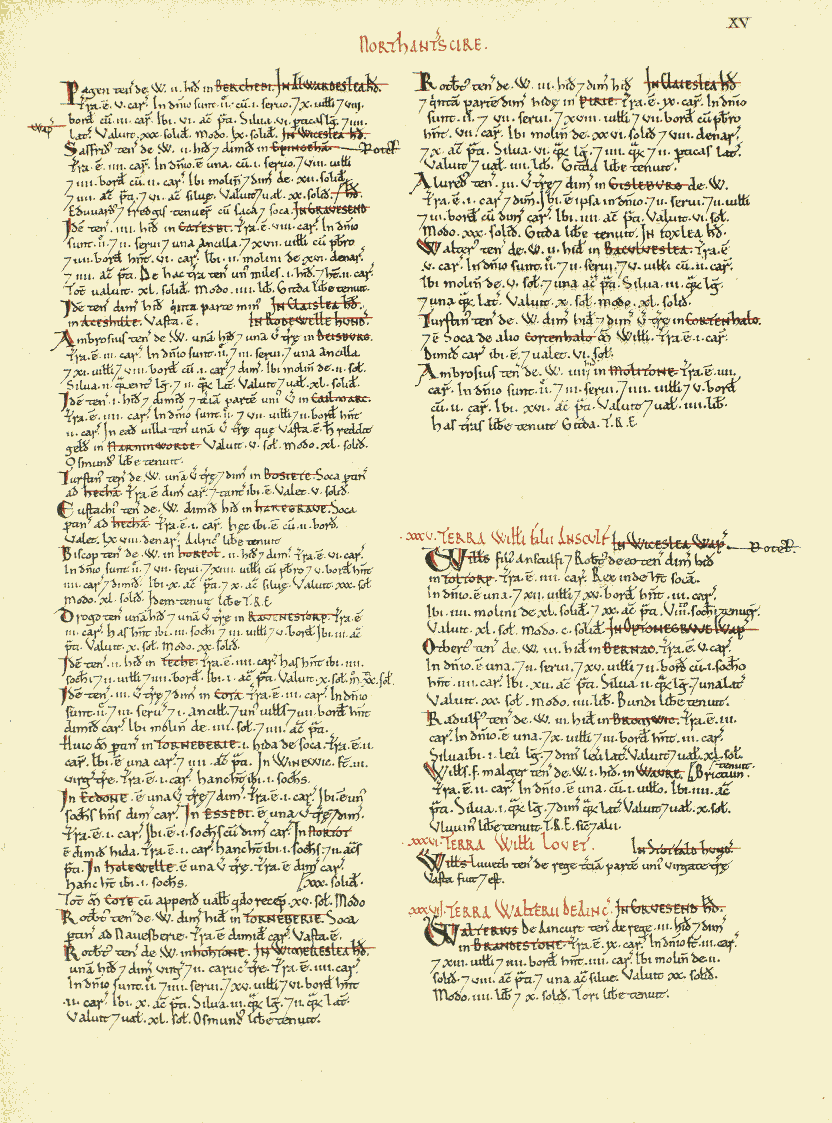 XV
NORTHANTSCIRE.
Pagen ten de. W. ii. hid in BERCHEBI. IN ALWARDESLEA hd.
Tra. e. v. car. In dnio sunt. ii. cu. i. seruo. 7 x. uilli 7 viii.
bord cu. iii. car. Ibi. vi. ac pti. Silua. vi. ptic lg. 7 iiii.
Wap
lat. Valuit. xxx. solid. Modo. lx. solid. IN WICESLEA hd.
Sasfrid ten de. W. ii. hid 7 dimid in EPINGEHA.
Rotel
Tra. e. iiii. car. In dnio e una. cu. i. seruo. 7 viii. uilli
7 iiii. bord cu. ii. car. Ibi molin 7 dim de. xii. solid.
7 iiii. ac pti. 7 vi. ac silue. Valuit 7 ual. xx. solid. hd.
Eduuard 7 Fredgis tenuer cu saca 7 soca. IN GRAVESEND
Ide ten. iiii. hid in CATESBI. Tra. e. viii. car. In dnio
sunt. ii. 7 ii. serui 7 una ancilla. 7 xvii. uilli cu pbro
7 iiii. bord hnt. vi. car. Ibi. ii. molini de xvi. denar.
7 iiii. ac pti. De hac tra ten un miles. i. hid 7 ht. ii. car.
Tot ualuit. xl. solid. Modo. iiii. lib. Gitda libe tenuit.
Ide ten dimid hid qinta parte min IN CLAISLEA hd.
in ACESHILLE. Vasta. e. IN RODEWELLE HUND.
Ambrosius ten de. W. una hid 7 una V tre in DEISBURG.
Tra. e. iii. car. In dnio sunt. ii. 7 iii. serui. 7 una ancilla
7 xi. uilli 7 viii. bord cu. ii. car 7 dim. Ibi molin de. ii. sol.
Silua. ii. qrent lg. 7 ii. qz lat. Valuit 7 ual. xl. solid.
Ide ten. i. hid 7 dimid 7 tcia parte uni V in CAILMARC.
Tra. e. iiii. car. In dnio sunt. ii. 7 vii. uilli 7 ii. bord hnt
ii. car. In ead uilla ten una V tre que Vasta. e. h reddit
geld in NARNINWORDE. Valuit. v. sol. Modo. xl. solid.
Osmund libe tenuit.
Turstin ten de. W. una V tre 7 dim in BOSIETE. Soca ptin
ad HECHA. Tra. e dim car. 7 tant ibi. e. Valet. v. solid.
Eustachi ten de. W. dimid hid in HAREGRAVE. Soca
ptin ad HECHA. Tra. e. i. car. hec ibi. e. cu. ii. bord.
Valet. lx viii. denar. Alric libe tenuit
Biscop ten de. W. in HORPOL. ii. hid 7 dim. Tra. e. vi. car.
In dnio sunt. ii. 7 vii. serui. 7 xiii. uilli cu pbro 7 v. bord hnt
iiii. car 7 dimid. Ibi. x. ac pti. 7 x. ac silue. Valuit. xxx. sol
Modo. xl. solid. Idem tenuit libe T.R.E.
Drogo ten una hid 7 una V tre in RAVENESTORP. Tra. e
iii. car. has hnt ibi. iii. sochi 7 iii. uilli 7 v. bord. Ibi. iii. ac
pti. Valuit. x. sol. Modo. xx. solid.
Ide ten. ii. hid in TECHE. Tra. e. iiii. car. has hnt ibi. iiii.
sochi 7 ii. uilli 7 iiii. bord. Ibi. i. ac pti. Valuit. x. sol. m. xx. sol.
Ide ten. iii. V tre 7 dim in COTA. Tra. e. iii. car. In dnio
sunt. ii. 7 ii. serui 7 i. ancill. 7 un uills 7 vii. bord hnt
dimid car. Ibi molin de. iiii. sol. 7 iiii. ac pti.
Huic M ptin in TORNEBERIE. i. hida de soca. Tra. e. ii
car. Ibi. e una car. 7 iii. ac pti. In WINEWIC. st. iii.
uirg tre. Tra. e. i. car. hanc ht ibi. i. sochs.
In ECDONE. e una V tre 7 dim. Tra. e. i. car. Ibi e un
sochs hns dim car. In ESSEBI. e una V tre 7 dim.
Tra. e. i. car. Ibi. e. i. sochs cu dim car. In NORTOT
e dimid hida. Tra. e. i. car. hanc ht ibi. i. sochs. 7 ii. acs
pti. In HOLEWELLE. e una V tre. Tra. e dim car.
hanc ht ibi. i. sochs. xxx. solid.
Tot M COTE cu append ualb qdo recep. xv. sol. Modo
Robt ten de. W. dim hid in TORNEBERIE. Soca
ptin ad Nauesberie. Tra. e dimid car. Vasta. e.
Robt ten de. W. in HOHTONE. IN WIMERESLEA hd.
una hid 7 dim uirg 7 ii. caruc tre. Tra. e. iiii. car.
In dnio sunt. ii. 7 iiii. serui. 7 xv. uilli 7 vi. bord hnt
ii. car. Ibi. x. ac pti. Silua. iii. qz lg. 7 ii. qz lat.
Valuit 7 ual. xl. sol. Osmund libe tenuit.
Robt ten de. W. iii. hid 7 dim hid IN CLAIESLEA hd
7 qinta parte dim hide in PIRIE. Tra. e. x. car. In dnio
sunt. ii. 7 vii. serui. 7 xviii. uilli 7 vii. bord cu pbro
hnt. vii. car. Ibi molin de. xxvi. solid 7 viii. denar.
7 x. ac pti. Silua. vi. qz lg. 7 iiii. qz 7 ii. pticas lat.
Valuit 7 ual. iiii. lib. Gitda libe tenuit.
Alured ten. iii. V tre 7 dim in GISLEBURG de. W.
Tra. e. i. car 7 dim. Ibi. e ipsa in dnio. 7 ii. serui. 7 iii. uilli
7 iii. bord cu dim car. Ibi. iiii. ac pti. Valuit. vi. sol.
Modo. xxx. solid. Gitda libe tenuit. IN FOXLEA hd.
Walter ten de. W. ii. hid in BACULVESLEA. Tra. e
v. car. In dnio sunt. ii. 7 ii. serui. 7 v. uilli cu. ii. car.
Ibi molin de. v. sol. 7 una ac pti. Silua. iii. qz lg.
7 una qz lat. Valuit. x. sol. modo. xl. solid.
Turstin ten de. W. dim hid 7 dim V tre in CORTENHALO.
7 e Soca de alio CORTENHALO M Willi. Tra. e. i. car.
Dimid car ibi. e. 7 ualet. vi. sol.
Ambrosius ten de. W. iiii. in MOLITONE. Tra. e. viii.
car. In dnio sunt. ii. 7 iii. serui. 7 iiii. uilli 7 v. bord
cu. ii. car. Ibi. xvi. ac pti. Valuit 7 ual. iiii. lib.
has tras libe tenuit Gitda. T.R.E.
XXXV. TERRA Willi filii Ansculf IN WICESLEA Wap.
Rotel.
Wills fili Ansculfi 7 Robt de eo ten dim hid
in TOLTORP. Tra. e. iiii. car. Rex inde ht soca.
In dnio. e una. 7 xii. uilli 7 x. bord hnt. iii. car.
Ibi. iiii. molini de xl. solid. 7 xx. ac pti. Viii. sochi tenuer.
Valuit. xl. sol. Modo. c. solid. IN OPTONEGRAVE Wap
Otbert ten de. W. iii. hid in BERNAC. Tra. e. v. car.
In dnio. e una. 7 ii. serui. 7 xv. uilli 7 ii. bord cu. i. socho
hnt. iiii. car. Ibi. xii. ac pti. Silua. ii. qz lg. 7 una lat
Valuit. xx. sol. modo. iiii. lib. Bundi libe tenuit.
Radulf ten de. W. iii. hid in BROCWIC. Tra. e. iii.
car. In dnio. e una. 7 x. uilli 7 iii. bord hnt. iii. car.
Silua ibi. i. leu lg. 7 dim leu lat. Valuit 7 ual. xl. sol.
tenuit.
Wills. f. malger ten de. W. i. hid. in WAVRE. Brictuin.
Tra. e. ii. car. In dnio. e. una. cu. i. uillo. Ibi. iiii. ac
pti. Silua. i. qz lg. 7 dim qz lat. Valuit 7 ual. x. sol.
Vluuin libe tenuit. T.R.E. sic 7 alii.
XXXVI. TERRA Willi LOVET.
Wills Luueth ten de rege tcia parte uni uirgate tre
Vasta fuit 7 est.
XXXVII. TERRA WALTERII DE AINC. IN GRVESEND hd.
WALTERIUS de Aincurt ten de rege. iii. hid 7 dim
in BRANDESTONE. Tra. e. x. car. In dnio st. iii. car.
7 xiii. uilli 7 iii. bord hnt. iiii. car. Ibi molin de. ii.
solid. 7 viii. ac pti. 7 una ac silue. Valuit. xx. solid.
Modo. iiii. lib 7 x. solid. Tori libe tenuit.